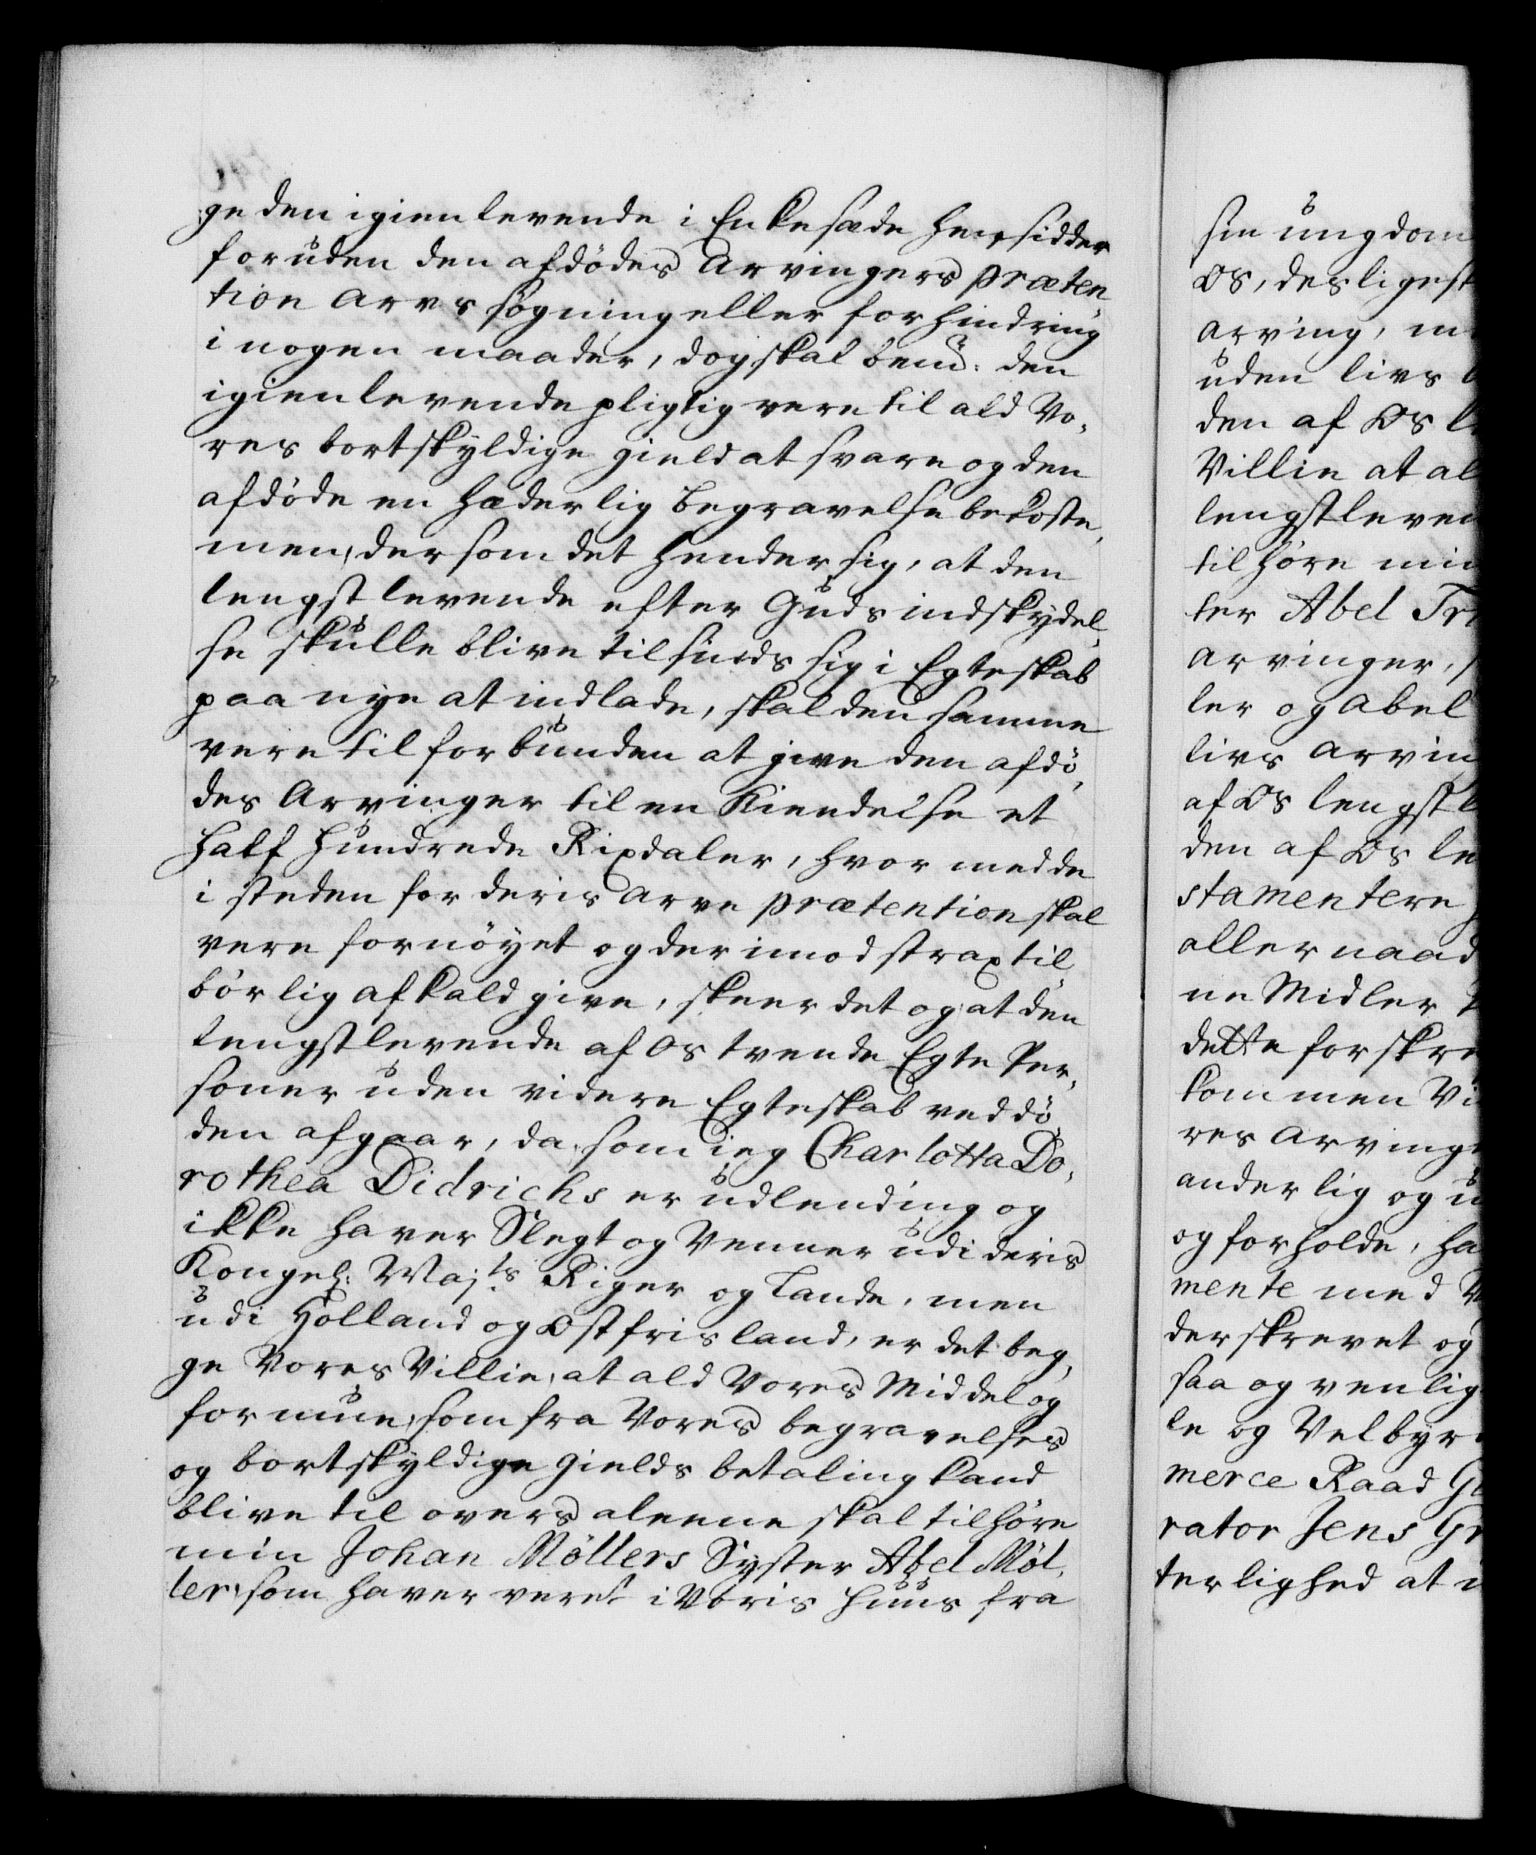 ge den igien levende i Enkesæde hensidder
foruden den afdödes Arvingers præten
tion arvs søgning eller forhindring
i nogen maader, dog skal bemt: den
igien levende pligtig vere til ald Vo,
res bortskyldige gield at svare og den
afdöde en hæderlig begravelse bekoste,
men, dersom det hender sig, at den
lengst levende efter Guds indskydel,
se skulle blive tilsinds sig i Egteskab
paa nye at indlade, skal den samme
vere til forbunden at give den afdö,
des Arvinger til en Kiendelse et
half hundrede Rixdaler, hvormed de
i steden for deris arve prætention skal
vere fornöyet og derimod strax til
börlig afkald give, skeer det og at den
lengstlevende af os tvende Egte Per,
soner uden videre Egteskab ved dö,
den afgaar, da som ieg Charlotta Do,
rothea Didrichs er udlending og
ikke haver Slegt og Venner udi deris
Kongel: Majts Riger og Lande, men
udi Holland og Ostfrisland, er det beg,
ge Vores Villie, at ald Vores Middel og
formue, som fra Vores begravelses
og bortskyldige gields betaling kand
blive til overs aleene skal tilhöre
min Johan Möllers Syster Abel Möl,
ler, som haver veret i Voris Huus fra

sin ungdom
os, desligest
arving, m
uden livs
den af os l
Villie at al
lengstleven
tilhöre min
ter Abel Tr
arvinger,
ler og Abel
livs arvin
af os lengstl
den af os le
stamentere
allernaad
ne Midler
dette forskre
kommen Vi
res arvinge
anderlig og u
og forholde, ha
mente med V
derskrevet og
saa og venlig
le og Velbyr
merce Raad G
rator Jens Gr
terlighed at i